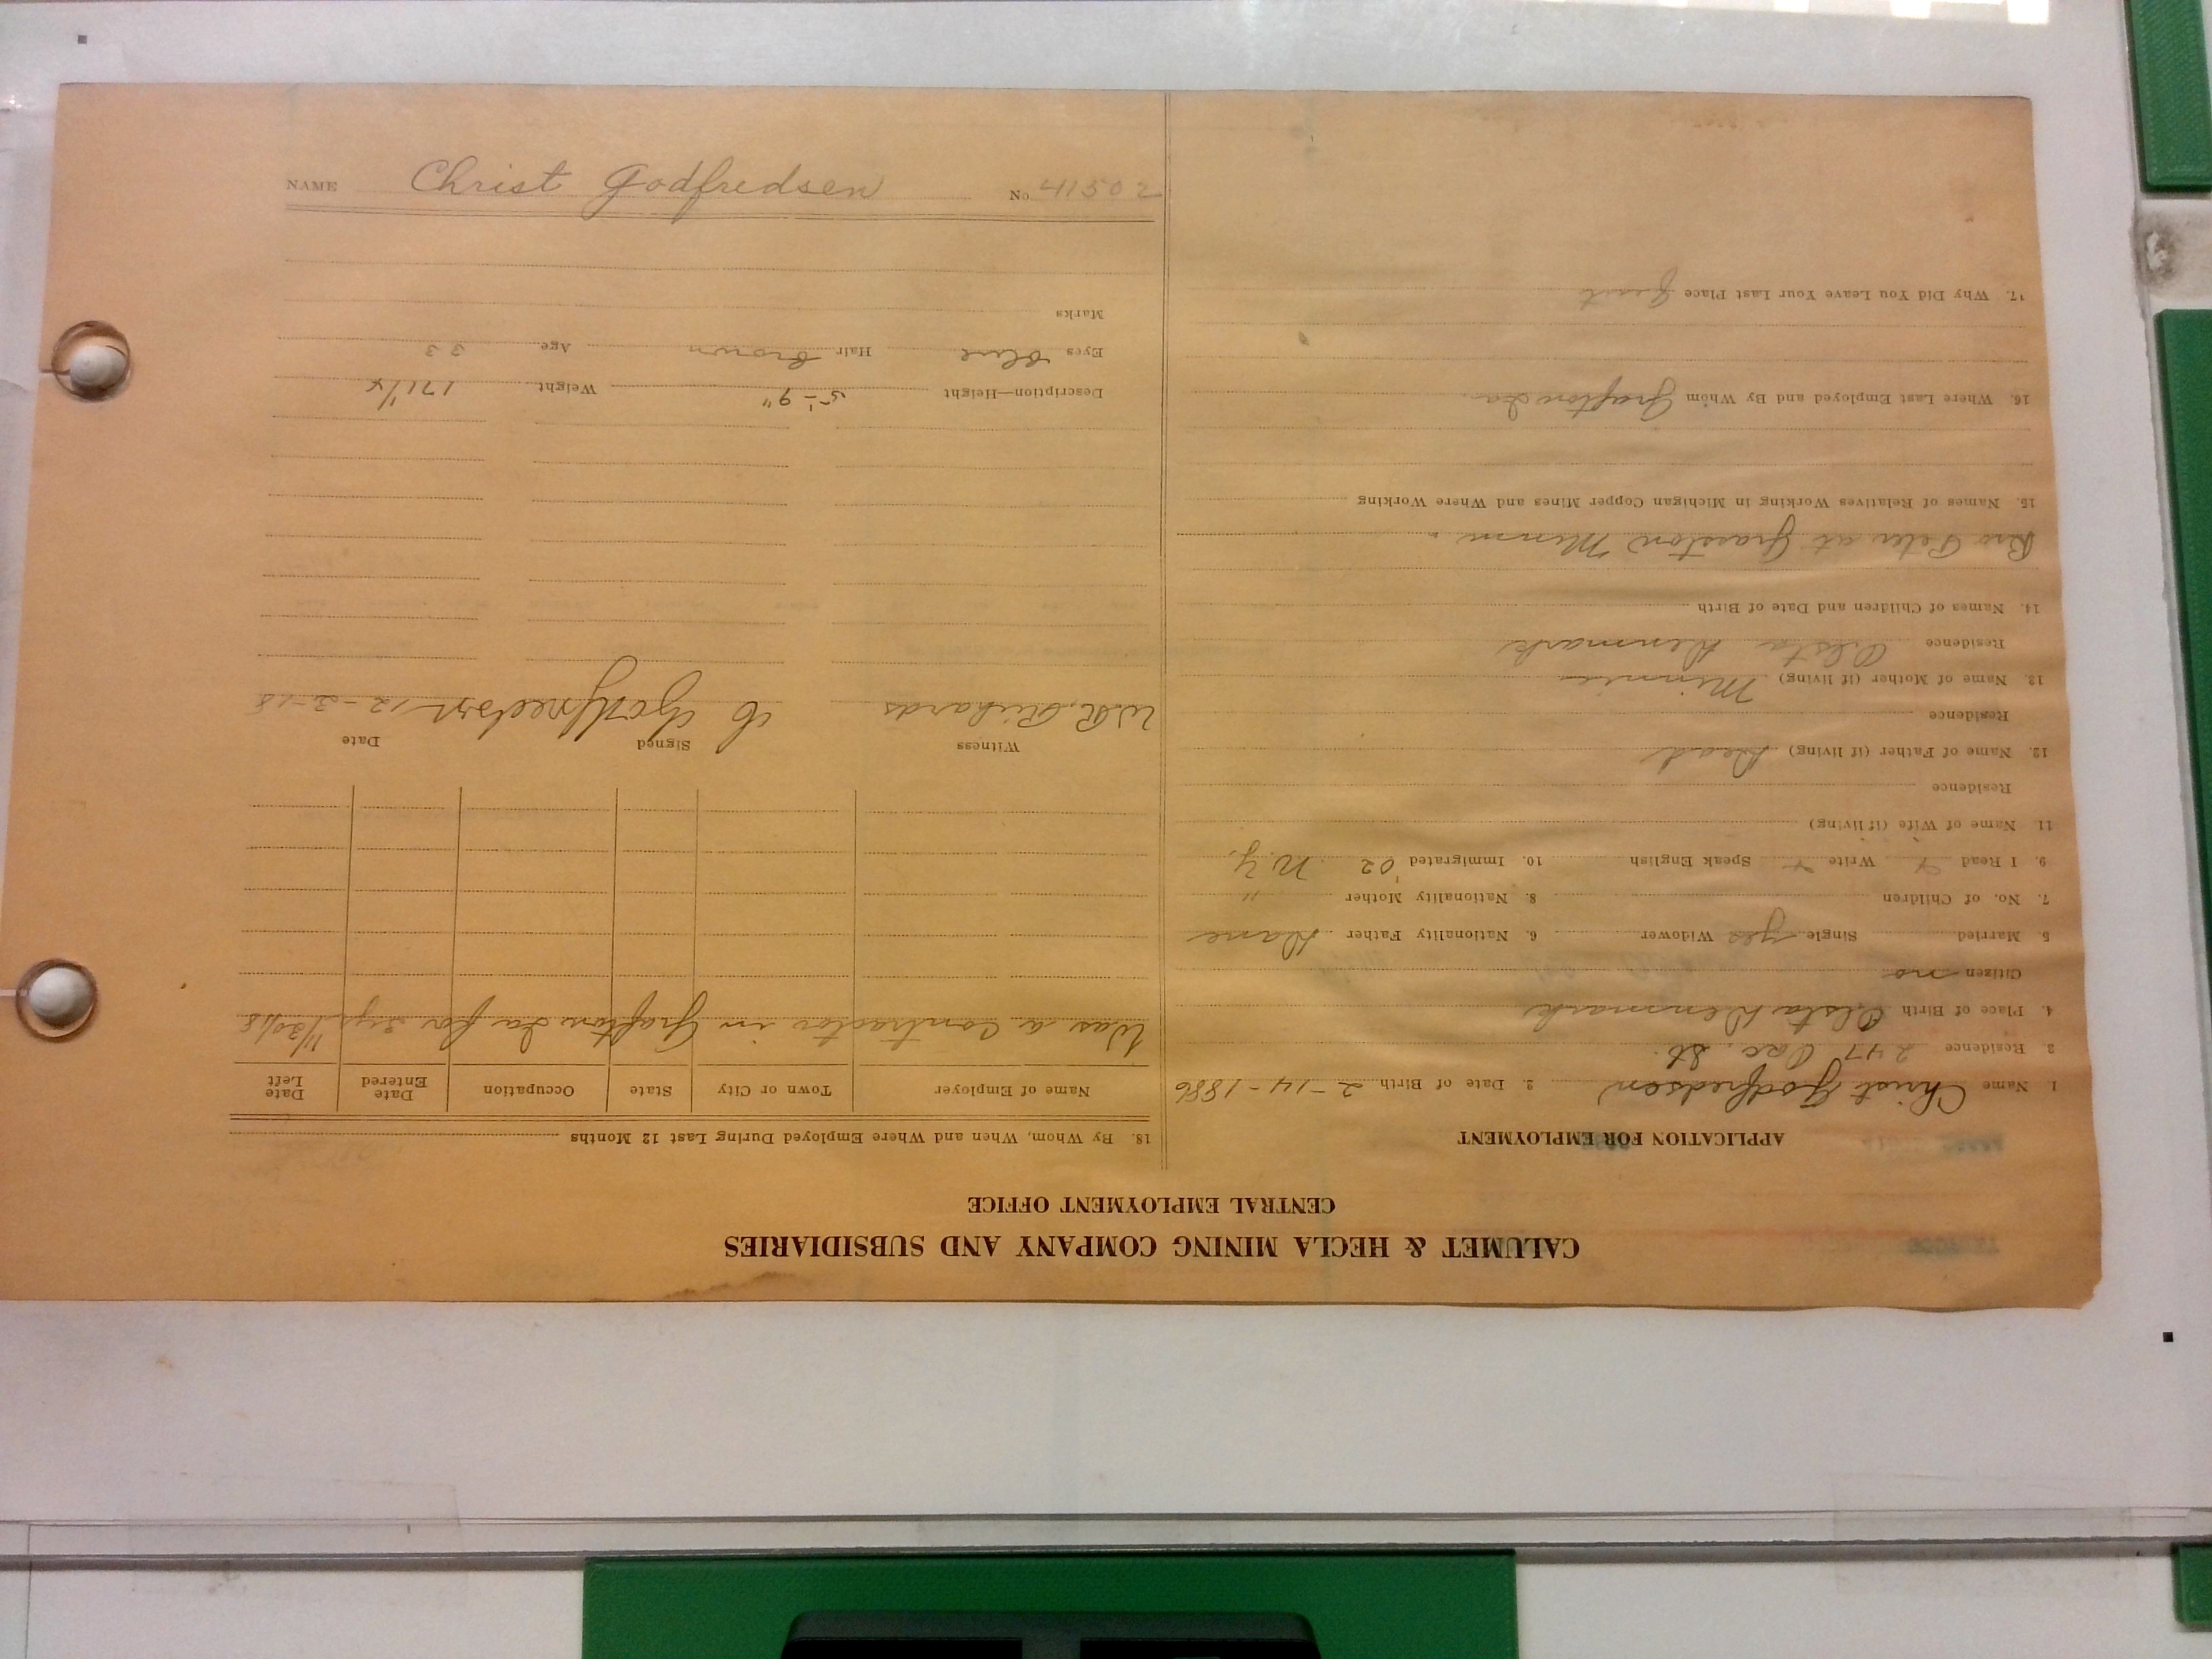 CALUMET & HECLA MINING COMPANY AND SUBSIDIARIES
CENTRAL EMPLOYMENT OFFICE
APPLICATION FOR EMPLOYMENT
1. Name Christ Godfredsen 2. Date of Birth 2-14-1886
3. Residence 247 St.
4. Place of Birth Denmark
Citizen no
5. Married Single yes Widower 6. Nationality Father Dane
7. No. of Children 8. Nationality Mother "
9. I Read Write Speak English 10. Immigrated '02 N.Y.
11. Name of Wife (if living)
Residence
12. Name of Father (if living) Dead
Residence
13. Name of Mother (if living) Minnie
Residence Denmark
14. Names of Children and Date of Birth
Bro Peter at Minn.
15. Names of Relatives Working in Michigan Copper Mines and Where Working
16. Where Last Employed and By Whom Grafton Ia.
17. Why Did You Leave Your Last Place
18. By Whom, When and Where Employed During Last 12 Months
Name of Employer Town or City State Occupation Date Entered Date Left
Was a contractor in Grafton Ia for 11/30/18
Witness Signed Date
W.R. Richards C Godfredsen 12-3-18
Description—Height 5'-9" Weight 171½
Eyes blue Hair brown Age 33
Marks
NAME Christ Godfredsen No 41502